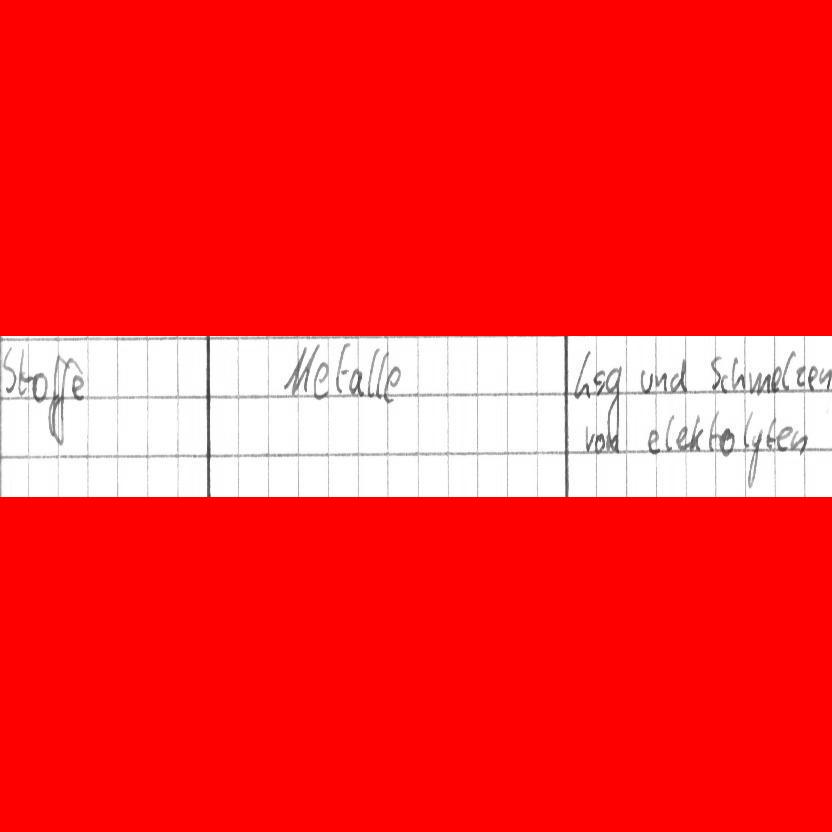 Stoffe Metalle Lsg und Schmelzen
von elektolyten